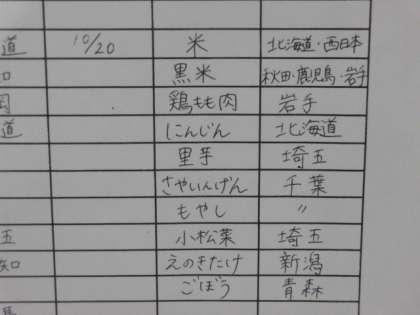 道 10/20 米 北海道・西日本
知 黒米 秋田・鹿児島・岩手
鶏もも肉 岩手
道 にんじん 北海道
里芋 埼玉
さやいんげん 千葉
もやし 〃
玉 小松菜 埼玉
知 えのきたけ 新潟
ごぼう 青森